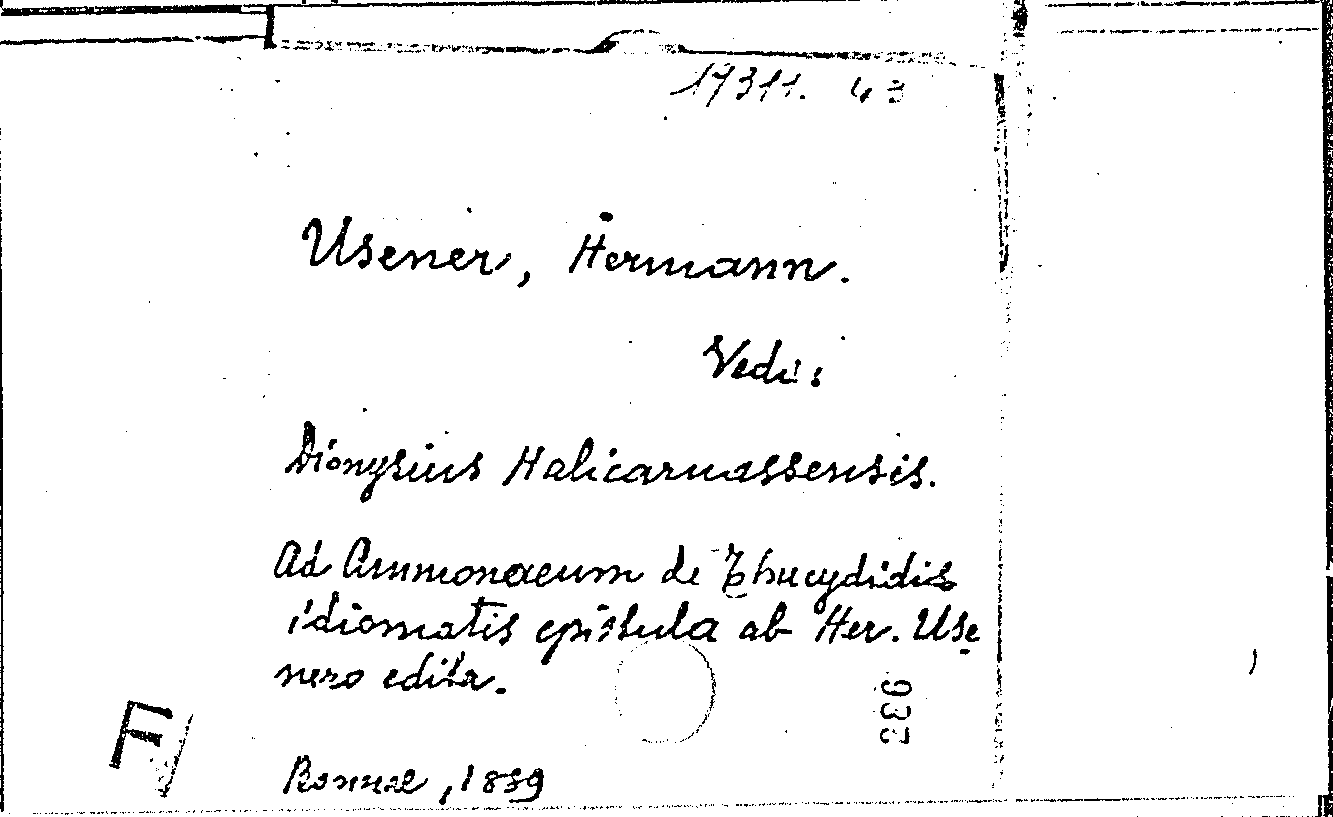 19311. 43
Usener, Hermann.
Vedi:
Dionysius Halicarnassensis.
Ad Ammonaeum de Thucydidis
idiomatis epistula ab Her. Use
nero edita.
936
F
Bonnae, 1889